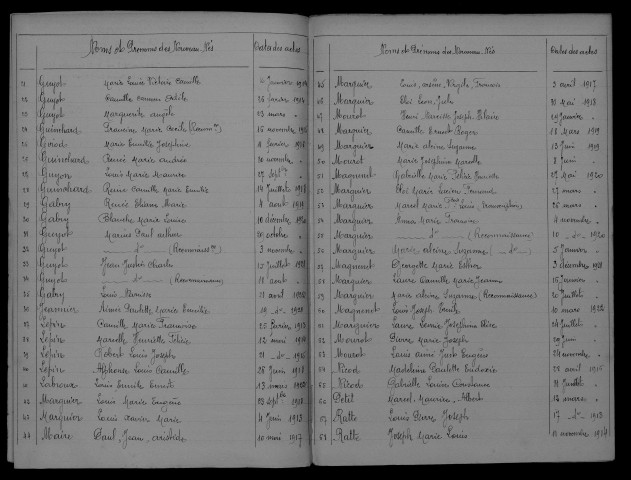 Noms et Prénoms des Nouveau-Nés Dates des actes
21 Guyot Marie Louise Victoire Camille
22 Guyot Camille 26 janvier
23 Guyot Marguerite Angèle 23 mars "
24 Guinchard Francine Marie Cécile 15 novembre
25 Girod Marie Emilie Joséphine 4 février 1918
26 Guinchard Renée Marie Andrée 30 novembre "
27 Guyon Louis Marie Maurice 27 sept
28 Guinchard Reine Camille Marie Emilie 14 juillet 1918
29 Gabry Renée Etienne Marie 4 août 1919
30 Gabry Blanche Marie Louise 10 décembre 1920
31 Guyot Marius Paul Arthur octobre
32 Guyot — do — (Reconnaissce) 3 novembre "
33 Guyot Jean Justin Charles juillet 1921
34 Guyot — (Reconnaissance) 11 août "
35 Gabry Louis 21 août 1922
36 Jeannier Paulette Marie Emilie 19 — do — 1923
37 Lépine Camille Marie Françoise 25 février 1913
38 Lépine Marcelle Henriette Félicie 12 mai 1914
39 Lépine Robert Louis Joseph 21 — do — 1916
40 Lépine Alphonse Louis Camille 26 juin 1918
41 Labrour Louis Emile Ernest 13 mars 1920
42 Marguier Louis Marie Eugène 22 septbre 1912
43 Marguier Louis Xavier Marie 4 juin 1913
44 Maire Paul Jean Aristide 10 mai 1917
Noms et Prénoms des Nouveau-Nés Dates des actes
45 Marguier Louis Arsène Virgile François 3 avril 1917
46 Marguier Eloi Léon Jules 31 mai 1918
47 Mourot Henri Narcisse Joseph Hilaire 29 janvier "
48 Marguier Camille Ernest Roger 18 mars 1919
49 Marguier Marie Alvine Suzanne 13 juin 1919
50 Mourot Marie Joséphine Marcelle 8 juin "
51 Magnenet Gabrielle Marie Félicie 27 mai 1920
52 Marguier Eloi Marie Lucien Fernand 27 mars "
53 Marguier Marcel Marie Louis (Transcription) 26 mars "
54 Marguier Marie Françoise 4 novembre "
55 Marguier — do — (Reconnaissance) 10 — do — 1920
56 Marguier Marie Alvine Suzanne (— do —) 5 janvier
57 Magnenet Georgette Marie Esther 3 décembre 1921
58 Marguier Laure Camille Marie Jeanne 15 janvier "
59 Marguier Marie Alvine Suzanne (Reconnaissance) 20 juillet "
60 Magnenet Louis Joseph Emile 10 mars 1922
61 Marguier Laure Denise Joséphine 24 juillet "
62 Mourot Pierre Marie Joseph 29 juin "
63 Mourot Louis Aimé Jules Eugène 24 novembre "
64 Nicod Madeleine Paulette Eudoxie 28 avril 1915
65 Nicod Gabrielle Louise Constance 11 juillet "
66 Petit Marcel Maurice Albert 12 mars "
67 Ratte Louis Pierre Joseph 17 — do — 1913
68 Ratte Joseph Marie Louis 11 novembre 1914